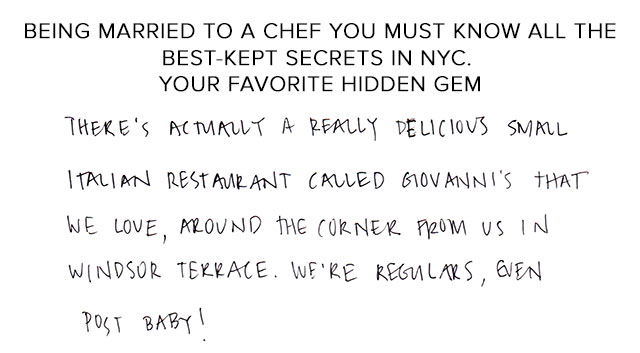 BEING MARRIED TO A CHEF YOU MUST KNOW ALL THE
BEST-KEPT SECRETS IN NYC.
YOUR FAVORITE HIDDEN GEM
THERE'S ACTUALLY A REALLY DELICIOUS SMALL
ITALIAN RESTAURANT CALLED GIOVANNI'S THAT
WE LOVE, AROUND THE CORNER FROM US IN
WINDSOR TERRACE. WE'RE REGULARS, EVEN
POST BABY!